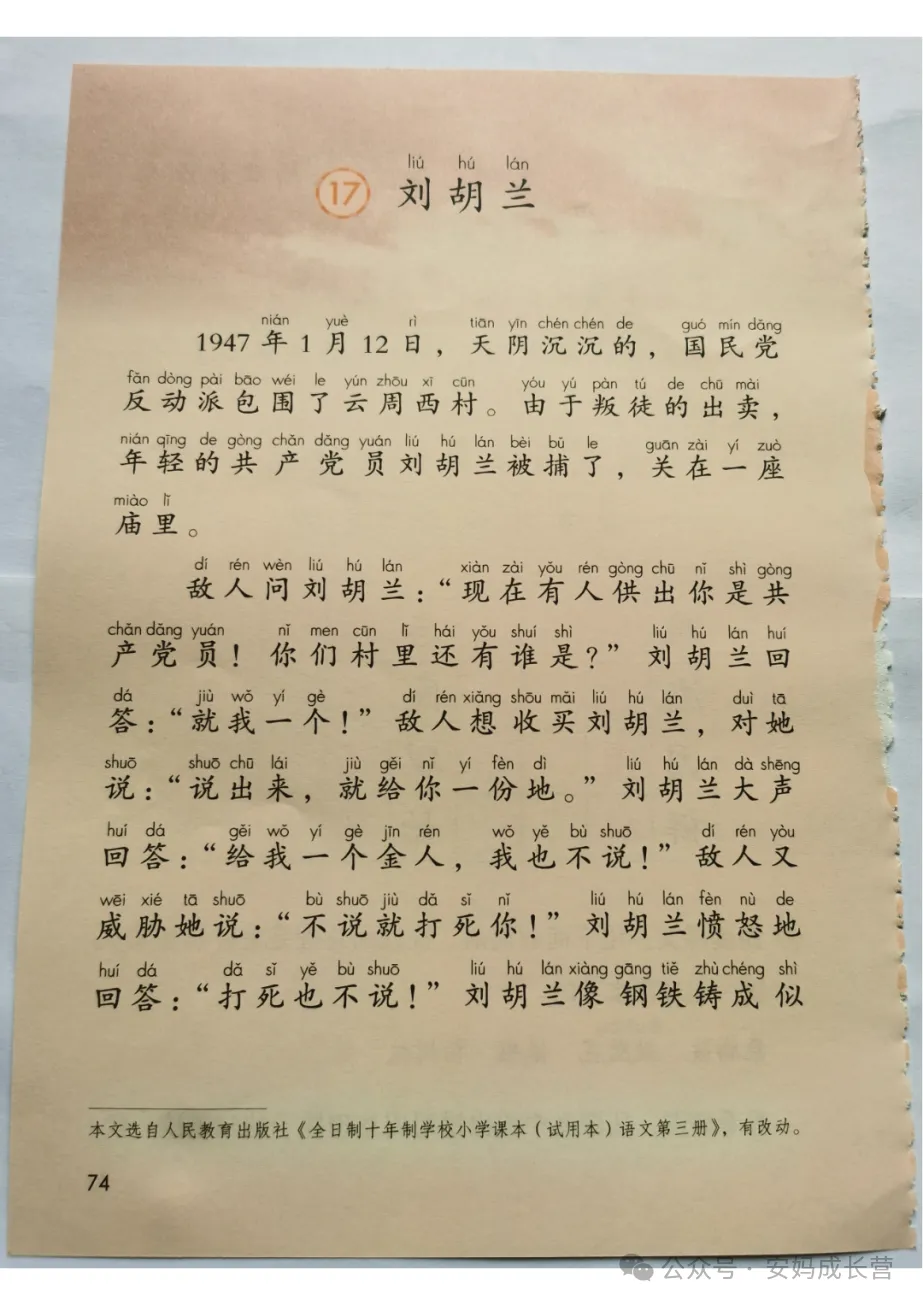 liú hú lán
17 刘胡兰
nián yuè rì tiān yīn chén chén de guó mín dǎng
1947年1月12日，天阴沉沉的，国民党
fǎn dòng pài bāo wéi le yún zhōu xī cūn yóu yú pàn tú de chū mài
反动派包围了云周西村。由于叛徒的出卖，
nián qīng de gòng chǎn dǎng yuán liú hú lán bèi bǔ le guān zài yí zuò
年轻的共产党员刘胡兰被捕了，关在一座
miào lǐ
庙里。
dí rén wèn liú hú lán xiàn zài yǒu rén gòng chū nǐ shì gòng
敌人问刘胡兰：“现在有人供出你是共
chǎn dǎng yuán nǐ men cūn lǐ hái yǒu shuí shì liú hú lán huí
产党员！你们村里还有谁是？”刘胡兰回
dá jiù wǒ yí gè dí rén xiǎng shōu mǎi liú hú lán duì tā
答：“就我一个！”敌人想收买刘胡兰，对她
shuō shuō chū lái jiù gěi nǐ yí fèn dì liú hú lán dà shēng
说：“说出来，就给你一份地。”刘胡兰大声
huí dá gěi wǒ yí gè jīn rén wǒ yě bù shuō dí rén yòu
回答：“给我一个金人，我也不说！”敌人又
wēi xié tā shuō bù shuō jiù dǎ sǐ nǐ liú hú lán fèn nù de
威胁她说：“不说就打死你！”刘胡兰愤怒地
huí dá dǎ sǐ yě bù shuō liú hú lán xiàng gāng tiě zhù chéng shì
回答：“打死也不说！”刘胡兰像钢铁铸成似
本文选自人民教育出版社《全日制十年制学校小学课本（试用本）语文第三册》，有改动。
74
公众号·安妈成长营